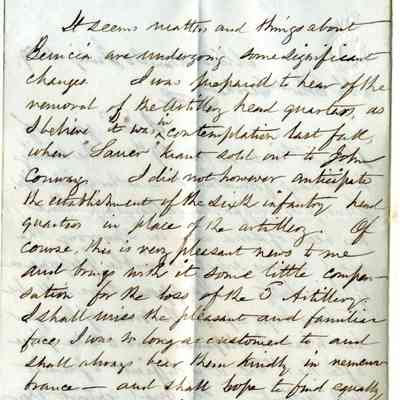 It seems matters and things about
Benicia are undergoing some significant
changes. I was prepared to hear of the
removal of the Artillery head quarters, as
I believe it was in contemplation last fall,
when "Sauer" kraut sold out to John
Conway. I did not however anticipate
the establishment of the sixth infantry head
quarters in place of the artillery. Of
course, this is very pleasant news to me
and brings with it some little compen-
sation for the loss of the Artillery.
I shall miss the pleasant and familiar
faces I was so long accustomed to and
shall always bear them kindly in remem-
brance — and shall hope to find equally